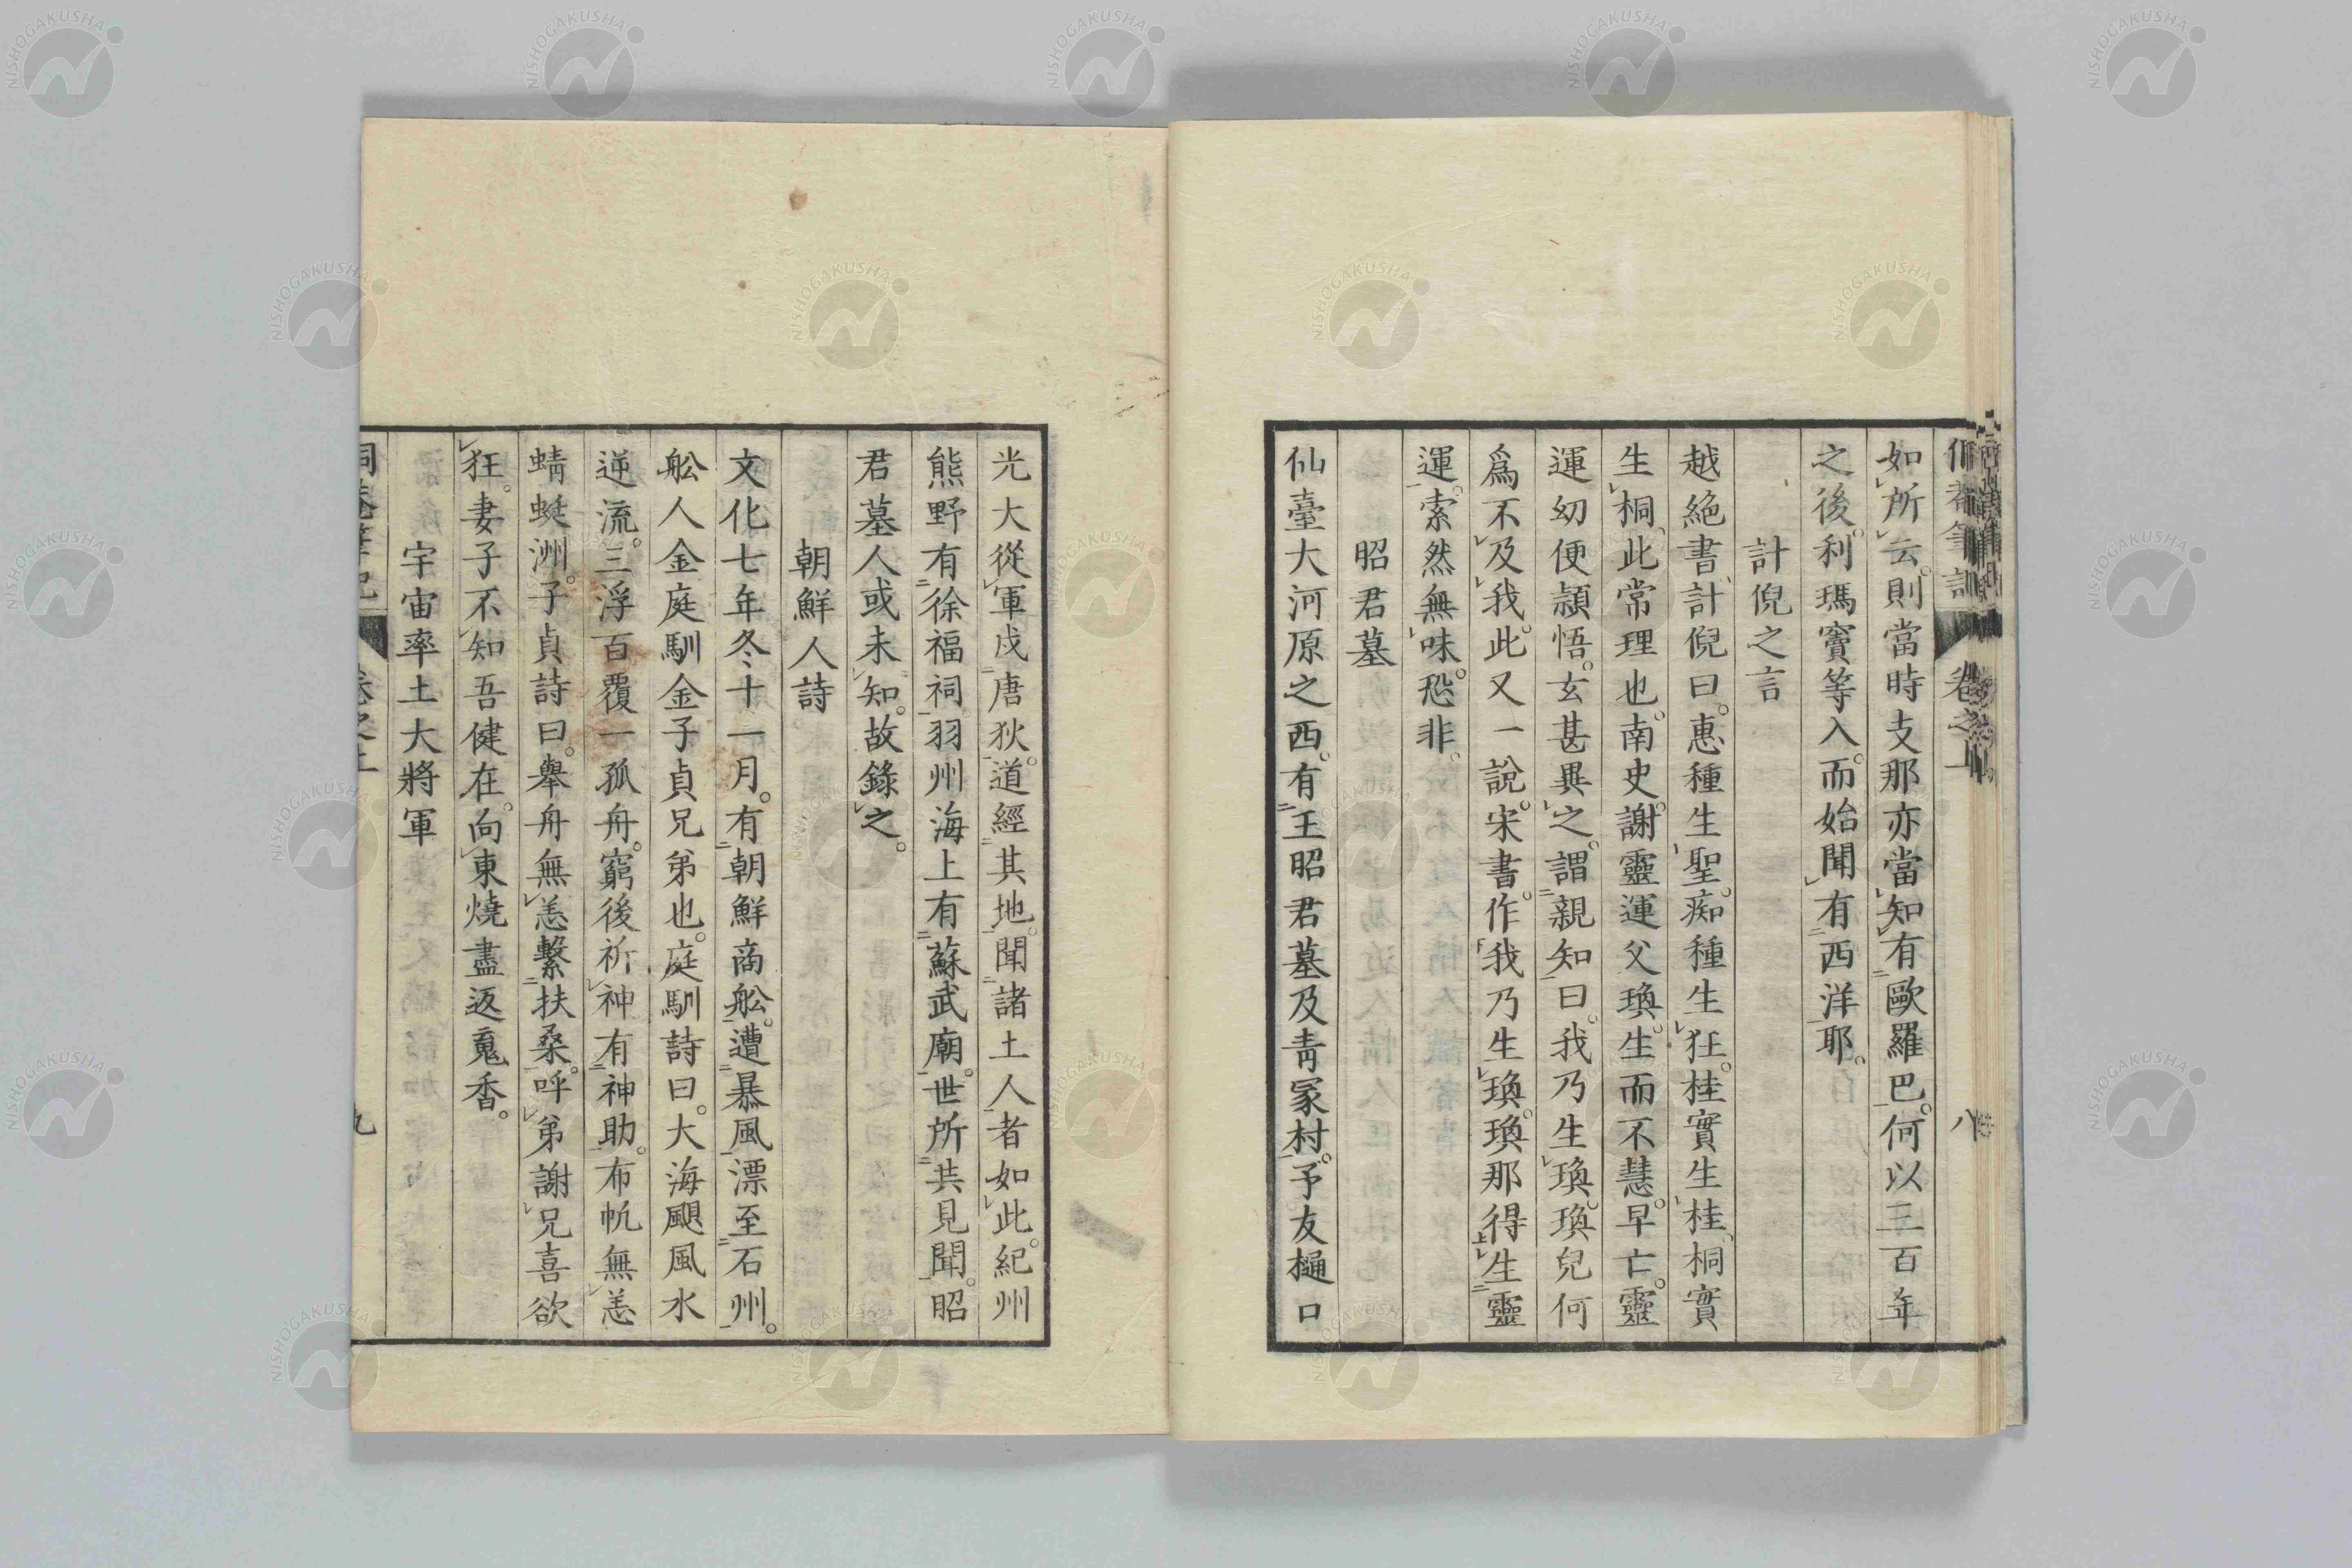 如所云。則當時支那亦當知有歐羅巴。何以三百年
之後。利瑪竇等入。而始聞有西洋耶。
計倪之言
越絶書、計倪曰。惠種生聖。痴種生狂。桂實生桂、桐實
生桐、此常理也。南史。謝靈運父瑍。生而不慧。早亡。靈
運幼便頴悟。玄甚異之。謂親知曰。我乃生瑍。瑍兒何
爲不及我。此又一說。宋書。作我乃生瑍。瑍那得生靈
運。索然無味。恐非。
昭君墓
仙臺大河原之西。有王昭君墓及青冢村。予友樋口
光大從軍戍唐狄。道經其地。聞諸土人者如此。紀州
熊野有徐福祠。羽州海上有蘇武廟。世所共見聞。昭
君墓人或未知。故錄之。
朝鮮人詩
文化七年冬、十一月。有朝鮮商舩。遭暴風漂至石州。
舩人金庭馴金子貞兄弟也。庭馴詩曰。大海颶風水
逆流。三浮百覆一孤舟。窮後祈神有神助。布帆無恙
蜻蜓洲。子貞詩曰。舉舟無恙繫扶桑。呼弟謝兄喜欲
狂。妻子不知吾健在。向東燒盡返䰟香。
宇宙率土大將軍
卷之上
八
九
NISHOGAKUSHA